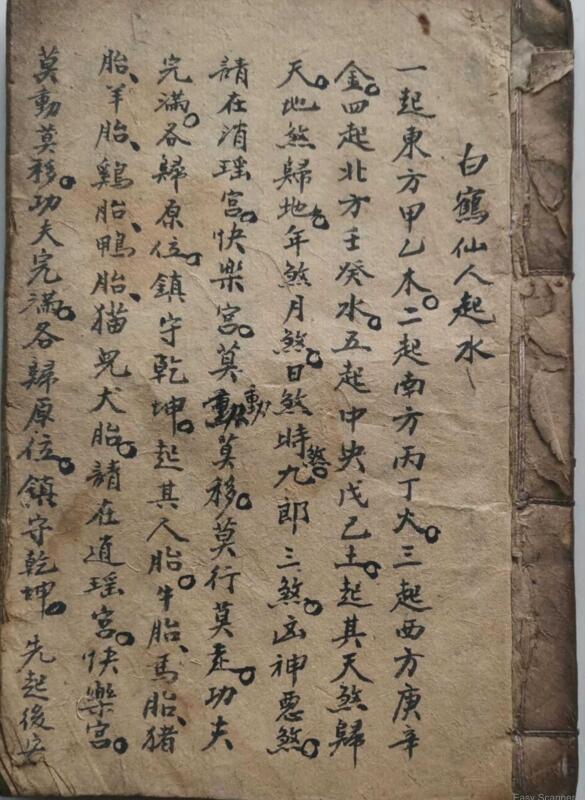 白鶴仙人起水
一起東方甲乙木。二起南方丙丁火。三起西方庚辛
金。四起北方壬癸水。五起中央戊己土。起其天煞歸
天。地煞歸地。年煞月煞。日煞時煞。九郎三煞。凶神惡煞。
請在消瑤宮。快樂宮。莫動莫移。莫行莫走。功夫
完滿。各歸原位。鎮守乾坤。起其人胎。牛胎、馬胎、猪
胎、羊胎、鷄胎、鴨胎、猫兒犬胎。請在逍瑤宮。快樂宮。
莫動莫移。功夫完滿。各歸原位。鎮守乾坤。先起後安
Easy Scanner